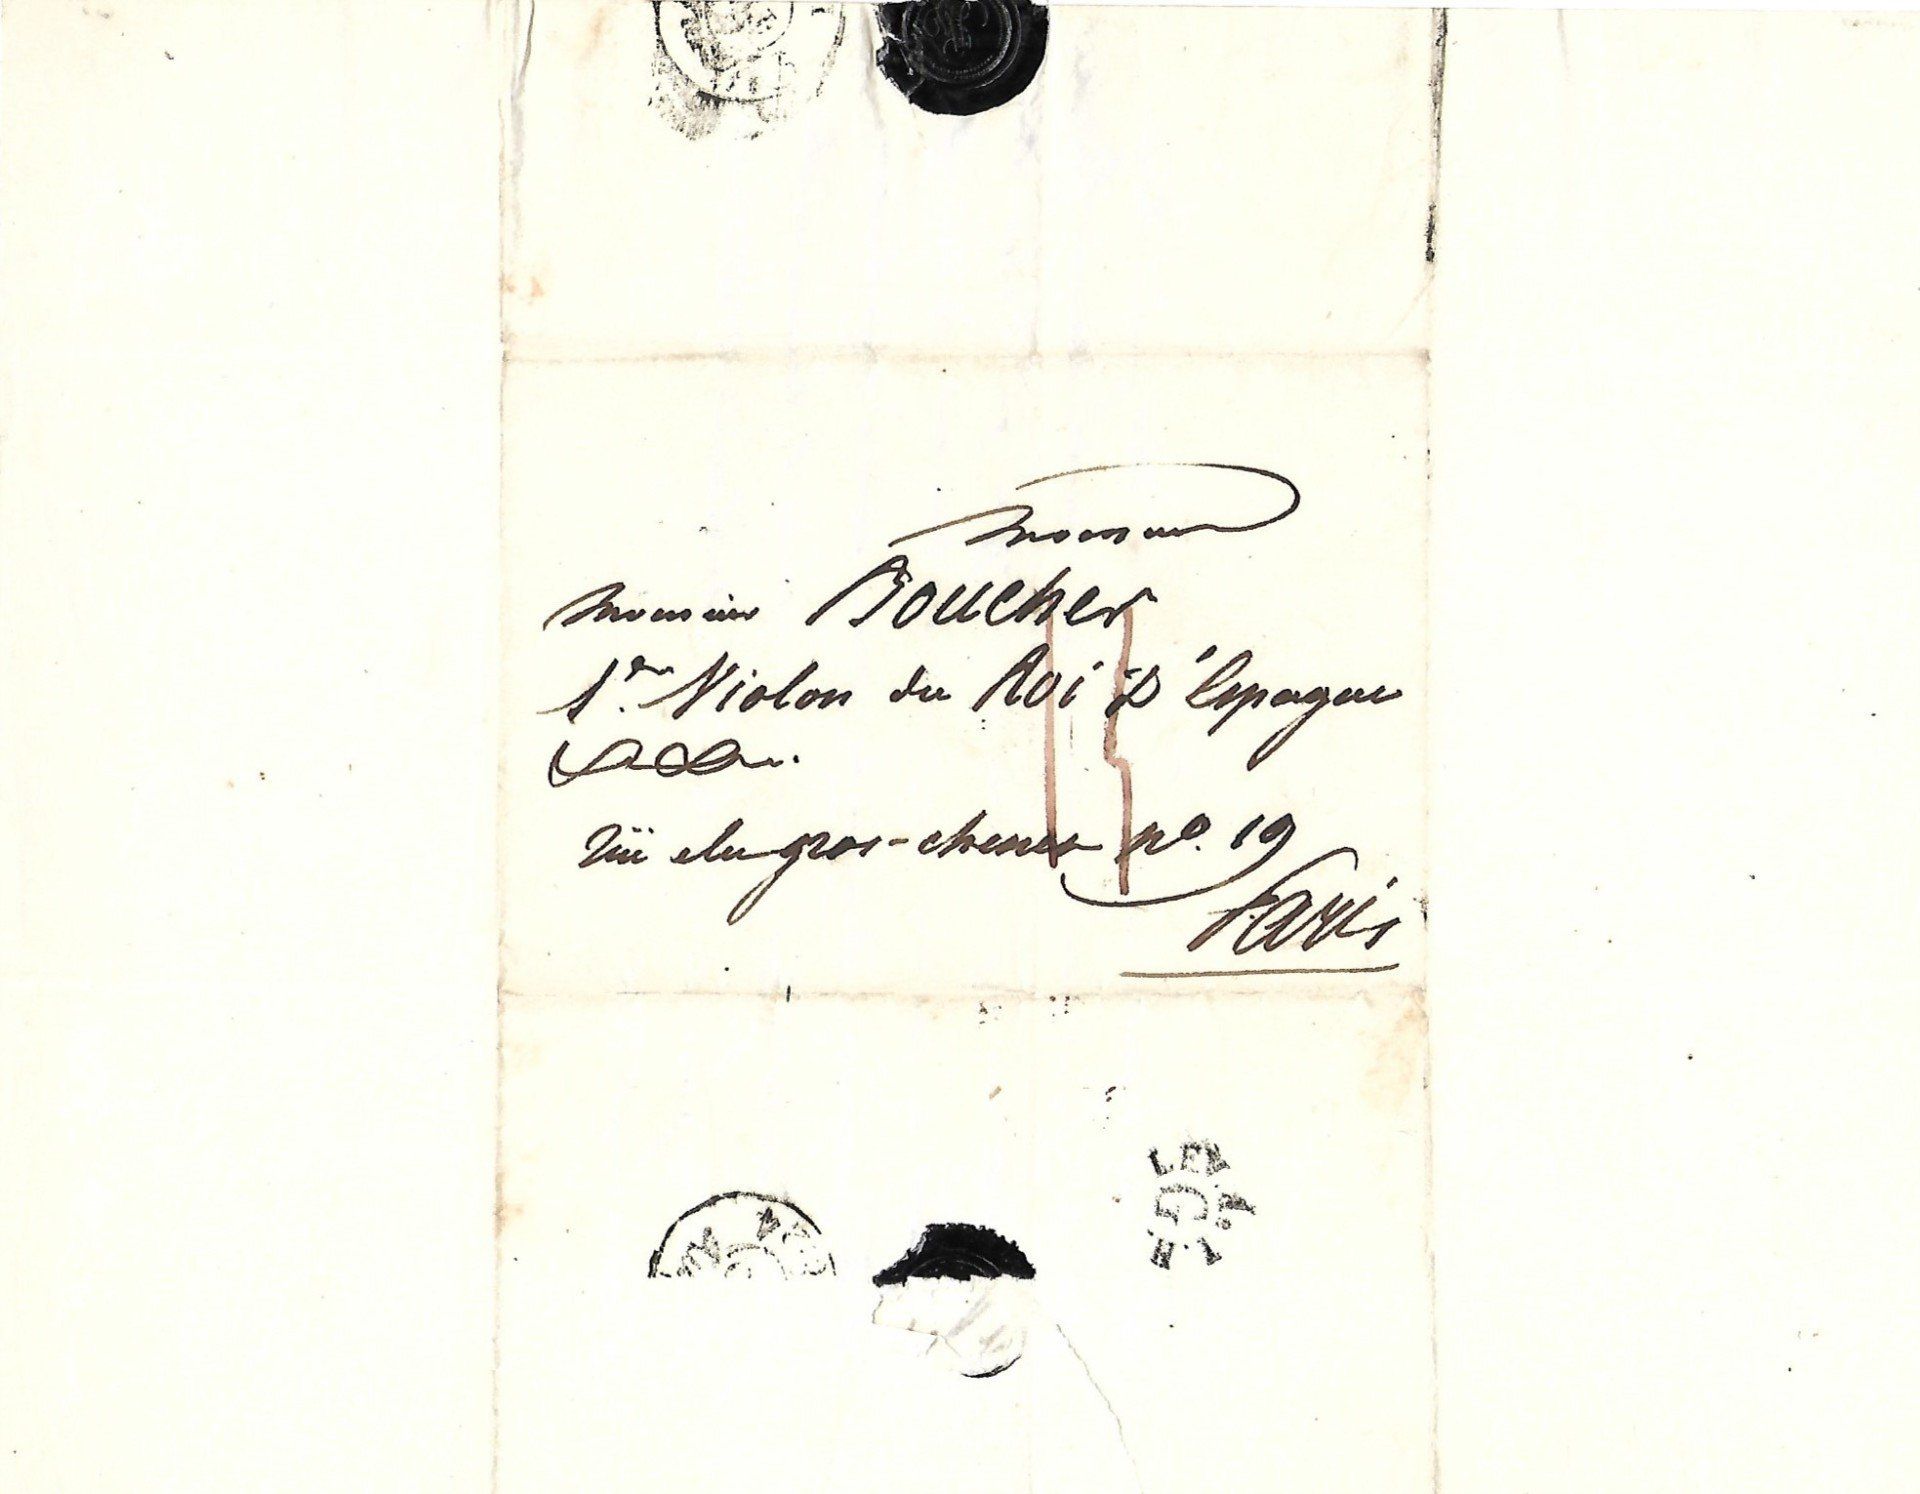 Monsieur
Monsieur Boucher
1er. Violon du Roi D'Espagne
rüe du gros-chenet no. 19
Paris
LEV
G